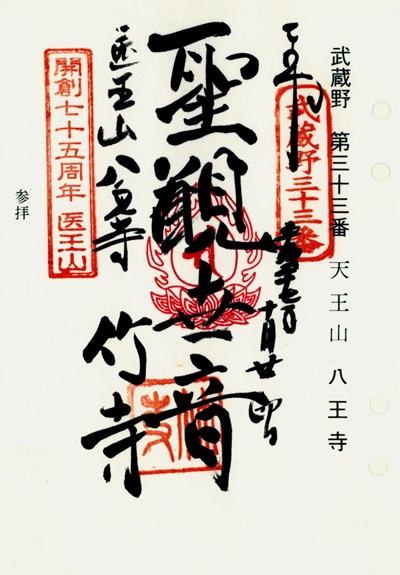 武蔵野 第三十三番 天王山 八王寺
武蔵野三十三番
十月廿
聖觀世音
医王山八王寺
竹寺
開創七十五周年 医王山
参拝